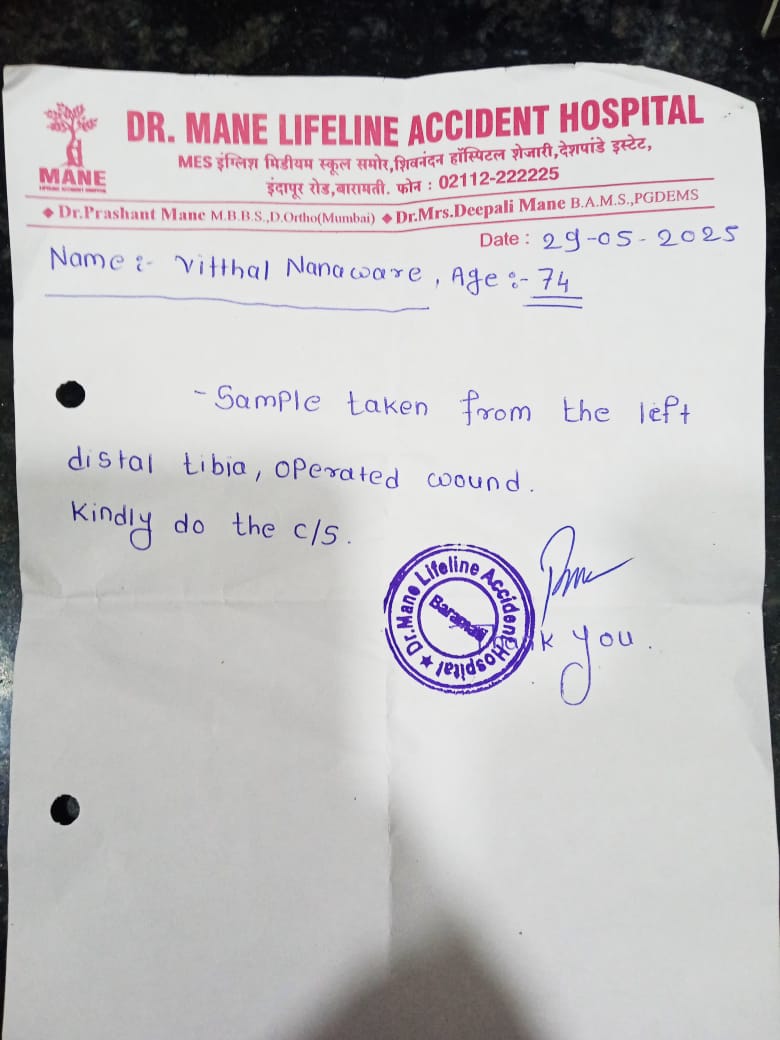 DR. MANE LIFELINE ACCIDENT HOSPITAL
MES इंग्लिश मिडीयम स्कूल समोर,शिवनंदन हॉस्पिटल शेजारी,देशपांडे इस्टेट,
MANE
इंदापूर रोड,बारामती. फोन : 02112-222225
◆ Dr.Prashant Mane M.B.B.S.,D.Ortho(Mumbai) ◆ Dr.Mrs.Deepali Mane B.A.M.S.,PGDEMS
Date : 29-05-2025
Name :- Vitthal Nanaware, Age :- 74
- Sample taken from the left
distal tibia, operated wound.
Kindly do the c/s.
Dr.Mane Lifeline Accident Hospital ★
Baramati
you.